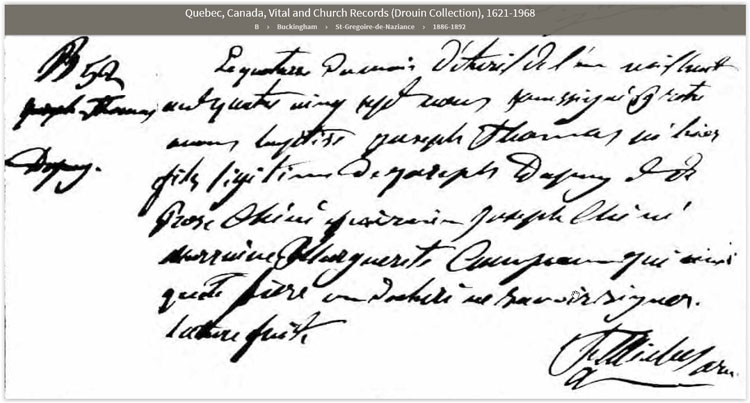 Quebec, Canada, Vital and Church Records (Drouin Collection), 1621-1968
B › Buckingham › St-Gregoire-de-Naziance › 1886-1892
B 52
Le quatorze du mois d'Avril de l'an mil huit
Joseph Thomas cent quatre vingt sept nous soussigné Prêtre
avons baptisé Joseph Thomas né hier
Dupuy. fils légitime de Joseph Dupuy et de
Rose Chéné parrain Joseph Chéné
marraine Marguerite Campeau qui ainsi
que le père ont déclaré ne savoir signer.
Lecture faite